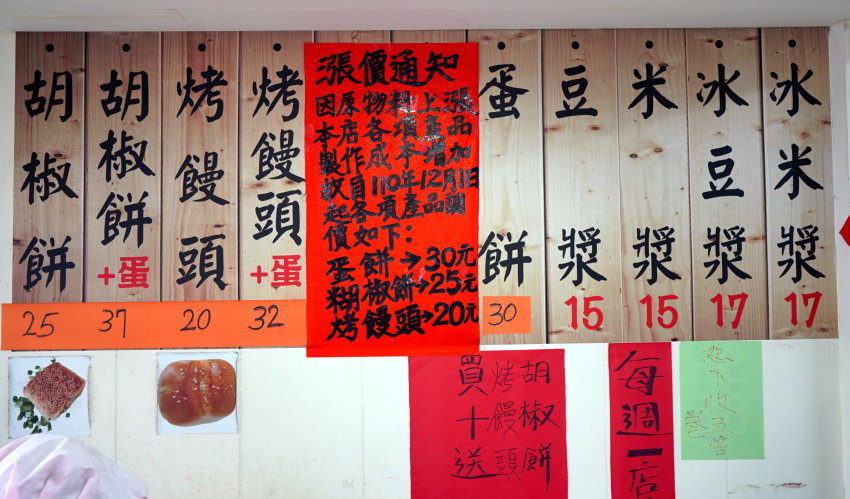 胡椒餅
25
胡椒餅
+蛋
37
烤饅頭
20
烤饅頭
+蛋
32
漲價通知
因原物料上漲
本店各項產品
製作成本增加
故自110年12月1日
起各項產品調
價如下:
蛋餅→30元
糊椒餅→25元
烤饅頭→20元
蛋餅
30
豆漿
15
米漿
15
冰豆漿
17
冰米漿
17
胡椒餅
烤饅頭
買十送
每週一店
恕不收五倍
卷